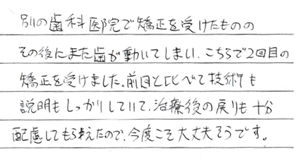 別の歯科医院で矯正を受けたものの
その後にまた歯が動いてしまい、こちらで2回目の
矯正を受けました。前回と比べて技術も
説明もしっかりしていて、治療後の戻りも十分
配慮してもらえたので、今度こそ大丈夫そうです。